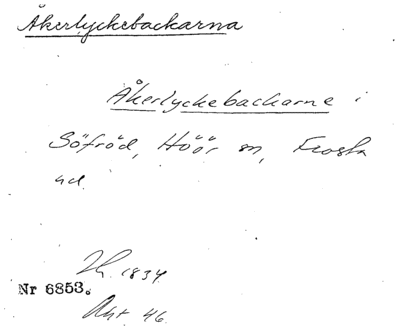 Åkerlyckebackarna
Åkerlyckebackarne i
Söfröd, Höör sn, Frosta
hd.
1834
Nr 6853.
Akt 46